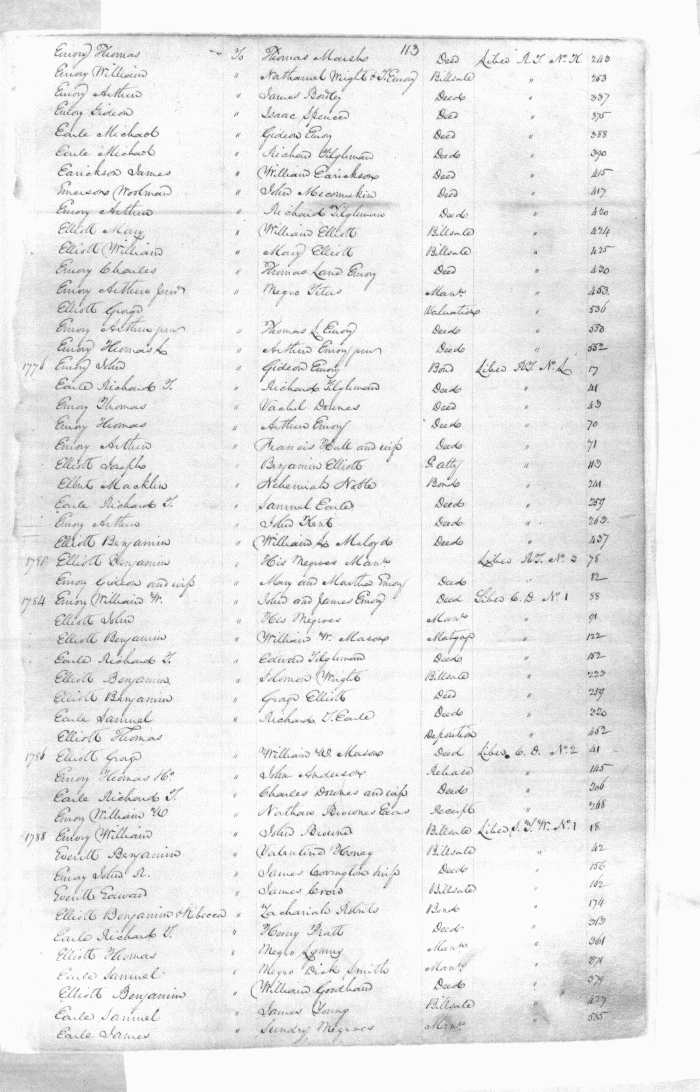 113
Emory Thomas " To Thomas Marsh Deed Liber R.T. No K 243
Emory William " Nathanial Wright & T. Emory Billsale " 263
Emory Arthur " James Bordley Deed " 337
Emory Gideon " Isaac Spencer Deed " 375
Earle Michael " Gideon Emory Deed " 388
Earle Michael " Richard Tilghman Deed " 390
Earickson James " William Earickson Deed " 415
Emerson Woolman " John Meconnekin Deed " 417
Emory Arthur " Richard Tilghman Deed " 420
Elliott Mary " William Elliott Billsale " 424
Elliott William " Mary Elliott Billsale " 425
Emory Charles " Thomas Land Emory Deed " 430
Emory Arthur junr " Negro Titus Manr " 463
Elliott Grace Valuation " 536
Emory Arthur junr " Thomas L. Emory Deed " 550
Emory Thomas L " Arthur Emory junr Deed " 552
1776 Emory John " Gideon Emory Bond Liber R.T. No L 17
Earle Richard T. " Richard Tilghman Deed " 41
Emory Thomas " Vachel Downes Deed " 43
Emory Thomas " Arthur Emory Deed " 70
Emory Arthur " Francis Hall and wife Deed " 71
Elliott Joseph " Benjamin Elliott P. atty " 113
Elbert Macklin " Nehemiah Noble Bond " 241
Earle Richard T. " Samuel Earle Deed " 259
Emory Arthur " John Kent Deed " 263
Elliott Benjamin " William Deed " 437
1780 Elliott Benjamin " His Negroes Manr Liber R.T. No 3 78
Emory Gideon and wife " Mary and Martha Emory Deed " 82
1784 Emory William W. " John and James Emory Deed Liber C.D. No 1 58
Elliott John " His Negroes Manr " 91
Elliott Benjamin " William W. Mason Mortgage " 122
Earle Richard T. " Edward Tilghman Deed " 152
Elliott Benjamin " Solomon Wright Billsale " 223
Elliott Benjamin " Grace Elliott Deed " 259
Earle Samuel " Richard T. Earle Deed " 320
Elliott Thomas Deposition " 462
1786 Elliott Grace " William W. Mason Deed Liber C.D. No 2 41
Emory Thomas " John Anderson Release " 145
Earle Richard T. " Charles Downes and wife Deed " 206
Emory William W " Nathan Brownes Receipt " 268
1788 Emory William " John Browne Billsale Liber S.T.W. No 1 18
Everitt Benjamin " Valentine Honey Billsale " 42
Emory John R. " James Covington & wife Deed " 156
Everitt Edward " James Crow Billsale " 162
Elliott Benjamin & Rebecca " Zachariah Roberts Bond " 174
Earle Richard T. " Henry Pratt Deed " 313
Elliott Thomas " Negro Manr " 361
Earle Samuel " Negro Dick Smith Manr " 371
Elliott Benjamin " William Goodhand Deed " 379
Earle Samuel " James Young Billsale " 427
Earle James " Sundry Negroes Manr " 535